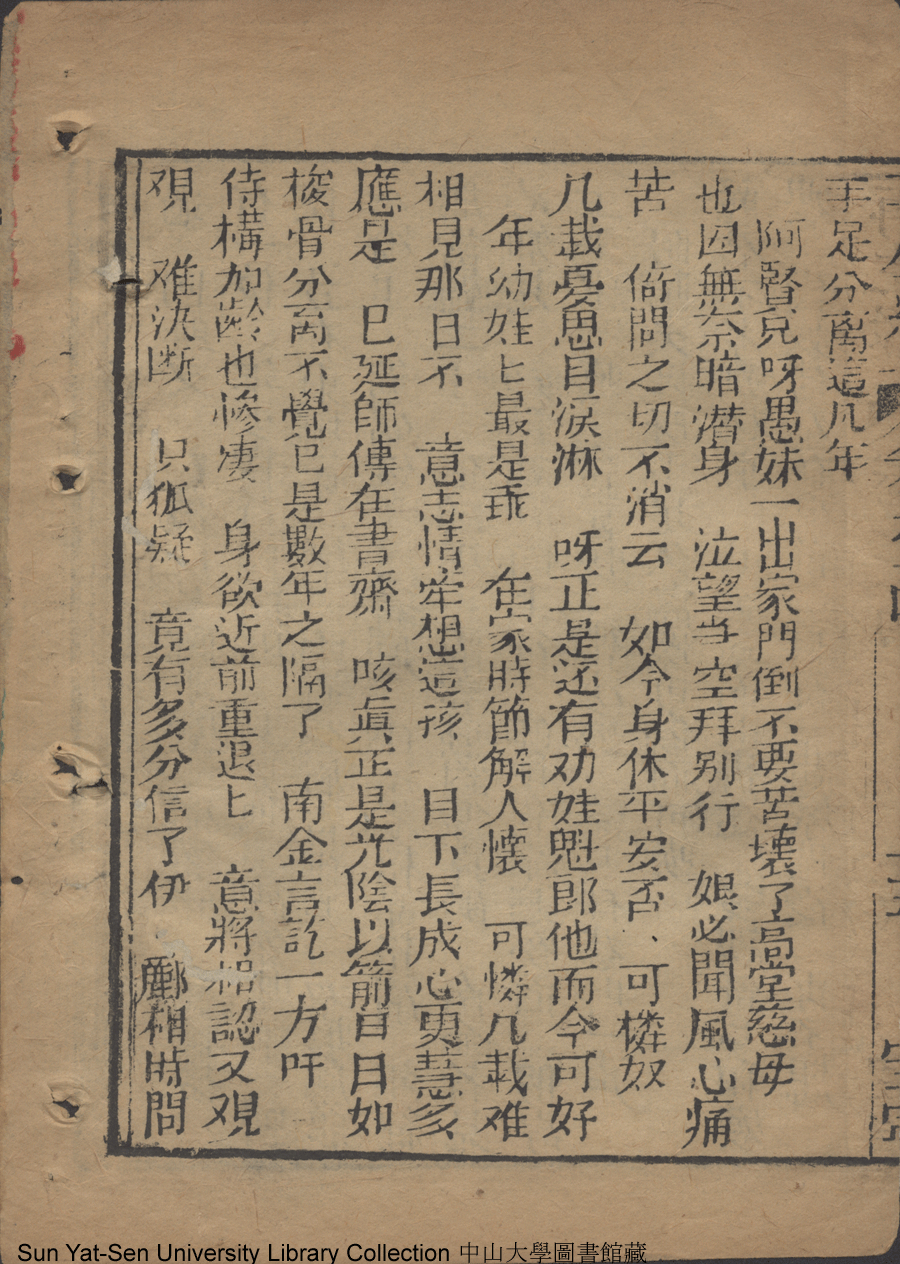 手足分离這几年
阿賢兄呀愚妹一出家門倒不要苦壞了高堂慈母
也因無奈暗潜身 泣望当空拜别行 娘必聞風心痛
苦 倚問之切不消云 如今身休平安否、可憐奴
几載憂思目淚淋 呀正是还有劝姓魁郎他而今可好
年幼娃匕最是乖 在家時節解人懷 可憐几載难
相見那日不 意志情牵想這孩 目下長成心更慧多
應是 已延師傅在書齋 咳眞正是光陰以箭日月如
梭骨分离不覺已是數年之隔了 南金言訖一方吁
侍構加齡也慘凄 身欲近前重退匕 意將相認又覌
覌 难决断 只狐疑 竟有多分信了伊 酈相時問
Sun Yat-Sen University Library Collection 中山大學圖書館藏